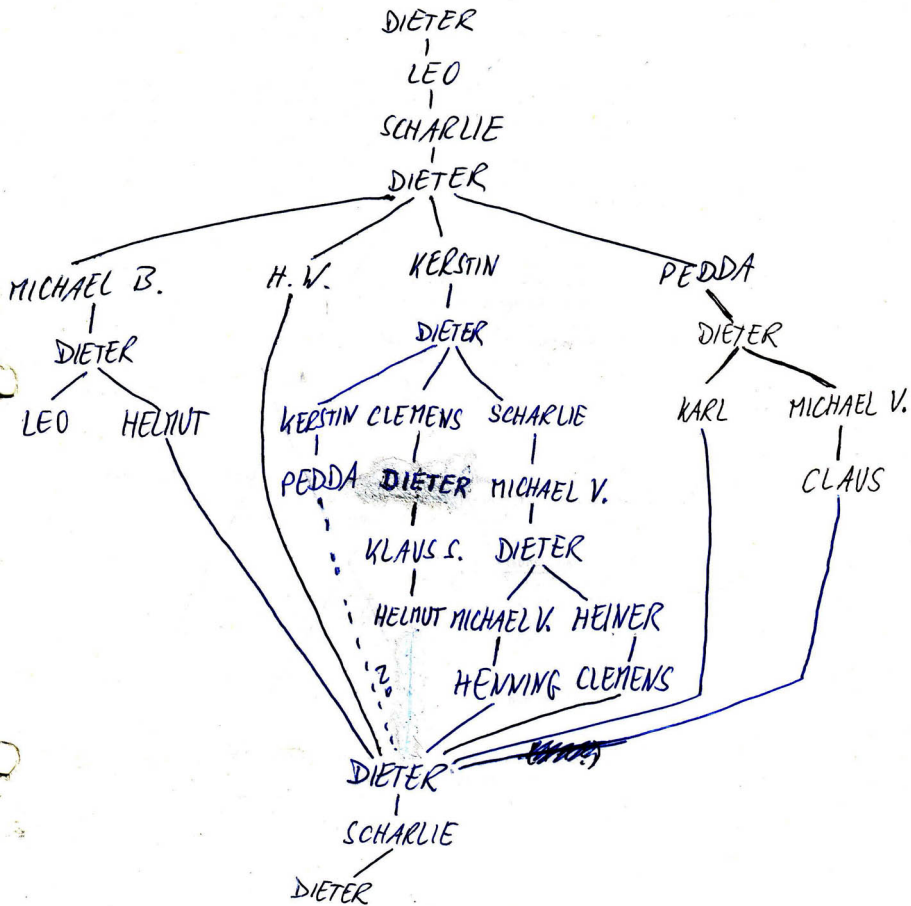 DIETER
LEO
SCHARLIE
DIETER
MICHAEL B. H.W. KERSTIN PEDDA
DIETER DIETER DIETER
LEO HELMUT KERSTIN CLEMENS SCHARLIE KARL MICHAEL V.
PEDDA DIETER MICHAEL V. CLAUS
KLAUS S. DIETER
HELMUT MICHAEL V. HEINER
HENNING CLEMENS
?
DIETER
SCHARLIE
DIETER